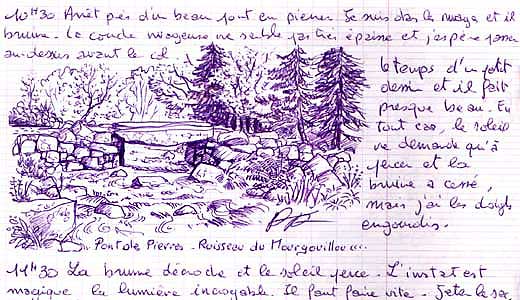 10H30 Arrêt près d'un beau pont en pierre. Je suis dans le nuage et il
bruine. La couche nuageuse ne semble pas très épaisse et j'espère passer
au-dessus avant le col
le temps d'un petit
dessin et il fait
presque beau. En
tout cas, le soleil
ne demande qu'à
percer et la
bruine a cessé,
mais j'ai les doigts
engourdis.
Pont de Pierres - Ruisseau du Mourgouillou
11H30 La brume décroche et le soleil perce. L'instant est
magique, la lumière incroyable. Il faut faire vite. Jeter le sac